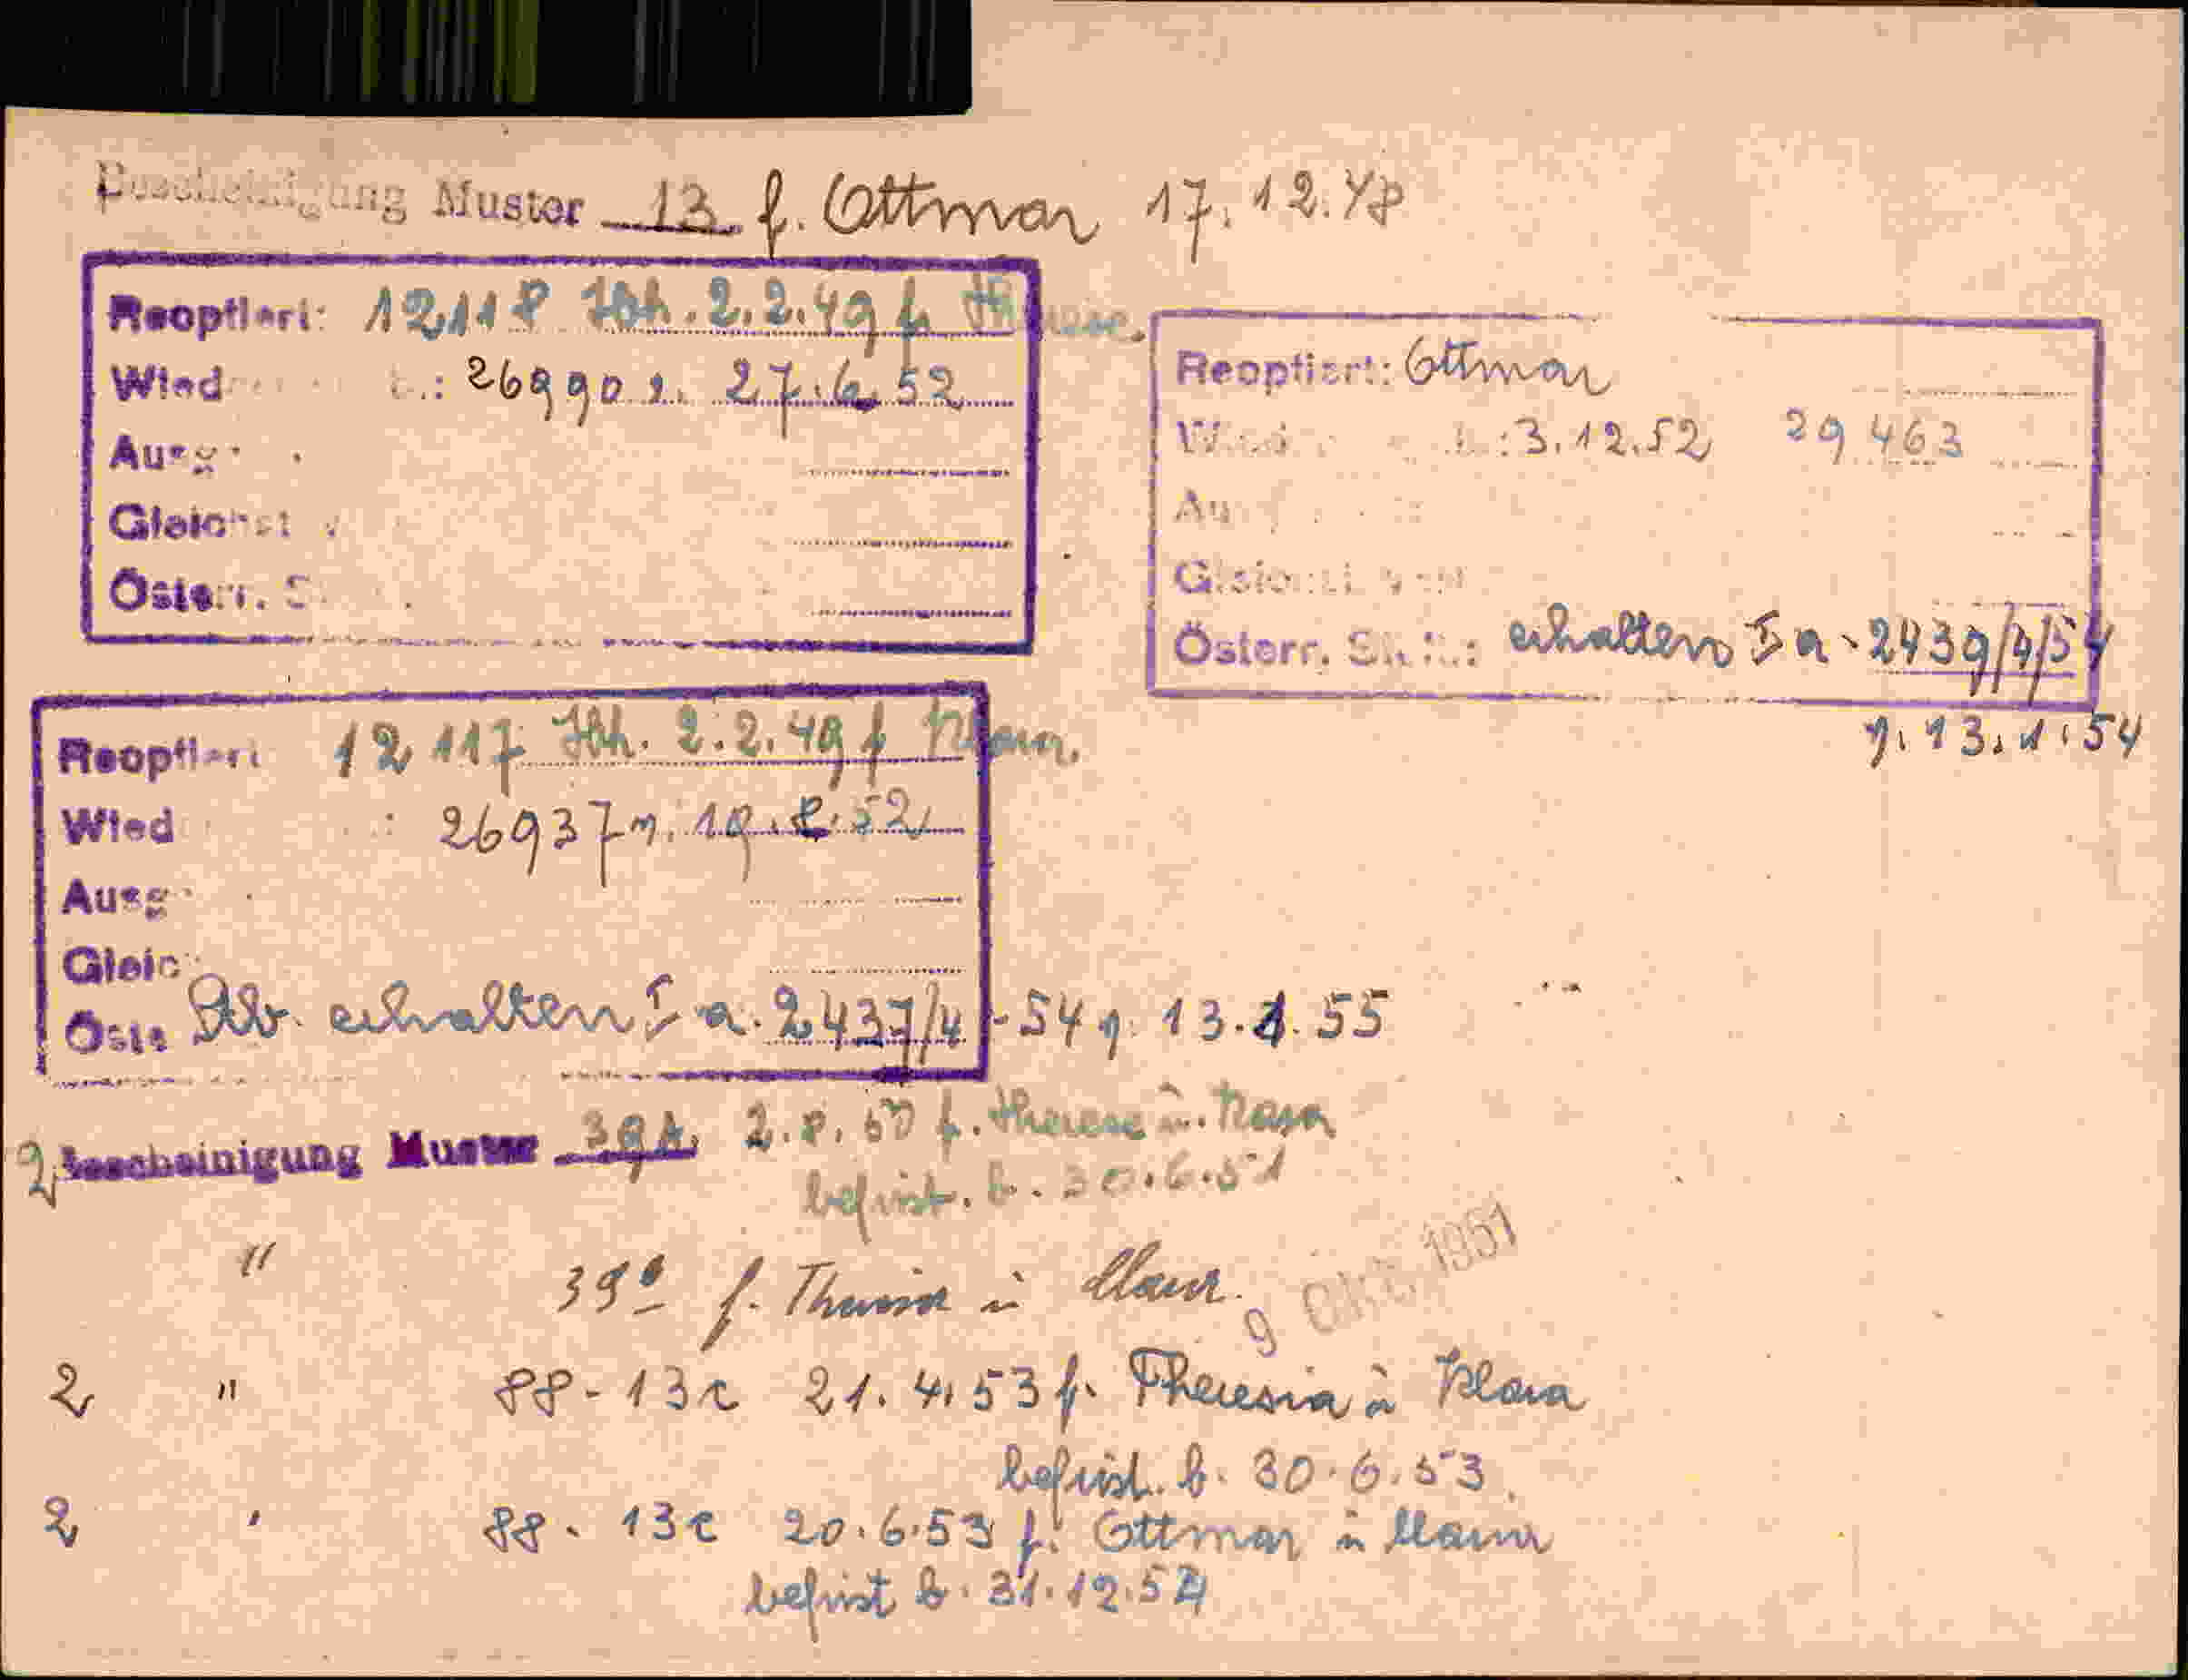 Bescheinigung Muster 13 f. Ottmar 17.12.48
Reoptiert: 12118 Ibk. 2.2.49 f. Therese.
Wied : 26990 v. 27.6.52
Ausg
Gleichst
Österr. S
Reoptiert: Ottmar
Wied : 3.12.52 29463
Au
Gleichst
Österr. St.B.: erhalten Ia-2439/4/54
v. 13.1.54
Reoptiert 12117 Ibk. 2.2.49 f Klara.
Wied : 26937 v. 19.8.52
Ausg
Gleic
Öste Stb. erhalten Ia. 2437/4-54 v. 13.1.55
2 Bescheinigung Muster 39a 2.8.50 f. Therese u. Klara
befrist. b. 30.6.51
" 39a f. Theresia u Klara. 9 Okt. 1951
2 " 88-13c 21.4.53 f. Theresia u Klara
befrist. b. 30.6.53.
2 " 88-13c 20.6.53 f. Ottmar u Klara
befrist b. 31.12.54